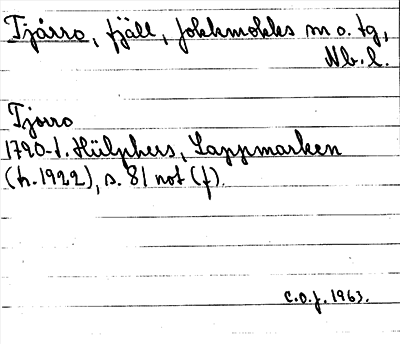 Tjårro, fjäll, Jokkmokks sn o. tg,
Nb. l.
Tjorro
1790-t. Hülphers, Lappmarken
(tr. 1922), s. 81 not (f).
C.O.J. 1963.